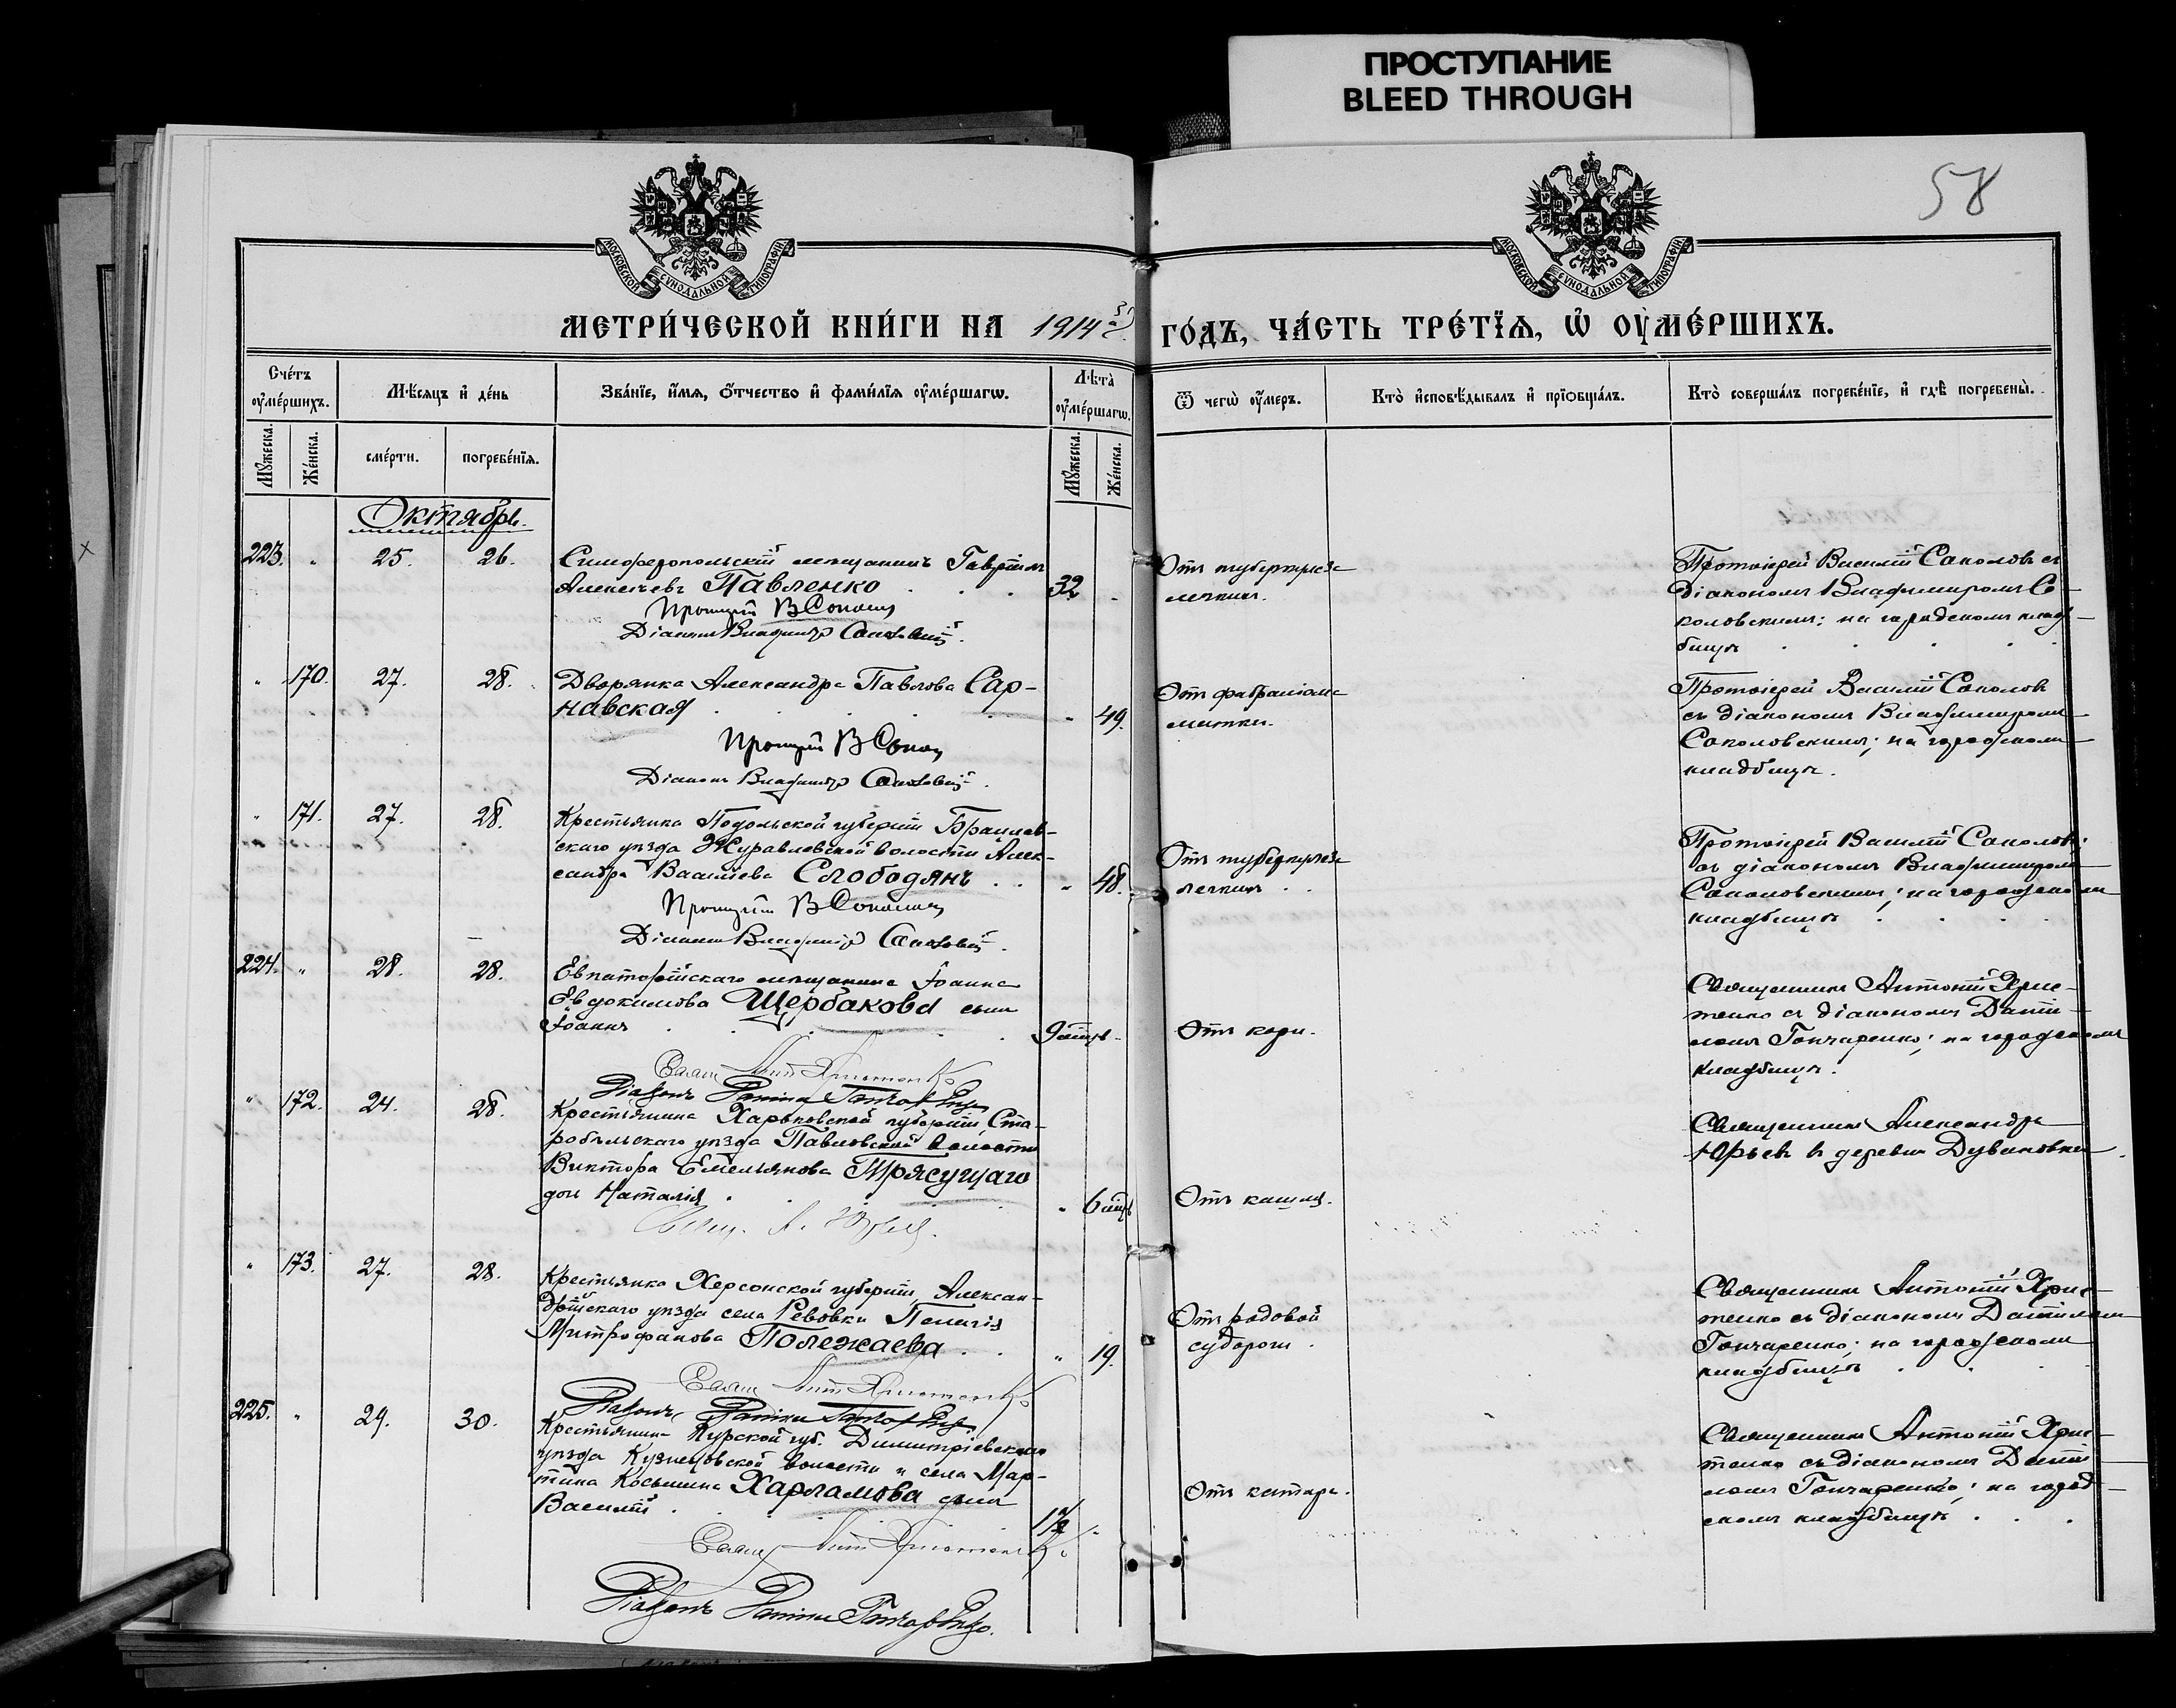 ПРОСТУПАНИЕ
BLEED THROUGH
58
МОСКОВСКОЙ СѴНОДАЛЬНОЙ ТИПОГРАФІИ
МОСКОВСКОЙ СѴНОДАЛЬНОЙ ТИПОГРАФІИ
МЕТРИ́ЧЕСКОЙ КНИ́ГИ НА 1914й ГО́ДЪ, ЧА́СТЬ ТРЕ́ТЇѦ, Ѡ҆ ОУ҆МЕ́РШИХЪ.
Сче́тъ оу҆ме́ршихъ.
Мꙋ́жеска.
Же́нска.
Мѣ́сѧцъ и҆ де́нь
сме́рти.
погребе́нїѧ.
Зва́нїе, и҆́мѧ, ѻ҆́тчество и҆ фами́лїѧ оу҆ме́ршагѡ.
Лѣ́та оу҆ме́ршагѡ.
Мꙋ́жеска.
Же́нска.
Ѿ чегѡ̀ оу҆́меръ.
Кто̀ и҆сповѣ́дывалъ и҆ прїѡбща́лъ.
Кто̀ соверша́лъ погребе́нїе, и҆ гдѣ̀ погребены̀.
Октябрь.
223. " 25. 26. Симферопольскій мѣщанинъ Гавріилъ
Алексѣевъ Павленко 32
Протоіерей В Соколовъ
Діаконъ Владиміръ Соколовскій.
Отъ туберкулеза
легкихъ.
Протоіерей Василій Соколовъ съ
діакономъ Владиміромъ Со-
коловскимъ; на городскомъ клад-
бищѣ
" 170. 27. 28. Дворянка Александра Павлова Сар-
навская " 49.
Протоіерей В Соколовъ
Діаконъ Владиміръ Соколовскій.
Отъ фиброміомы
матки.
Протоіерей Василій Соколовъ
съ діакономъ Владиміромъ
Соколовскимъ; на городскомъ
кладбищѣ.
" 171. 27. 28. Крестьянка Подольской губерніи Брацлав-
скаго уѣзда Журавлевской волости Алек-
сандра Васильева Слободянъ " 48.
Протоіерей В Соколовъ
Діаконъ Владиміръ Соколовскій.
Отъ туберкулеза
легкихъ
Протоіерей Василій Соколовъ
съ діакономъ Владиміромъ
Соколовскимъ; на городскомъ
кладбищѣ
224. " 28. 28. Евпаторійскаго мѣщанина Іоанна
Евдокимова Щербакова сынъ
Іоаннъ 9 мѣс.
Свящ. Ант. Христенко
Діаконъ Даніилъ Гончаренко
Отъ кори.
Священникъ Антоній Хрис-
тенко съ діакономъ Даніи-
ломъ Гончаренко; на городскомъ
кладбищѣ.
" 172. 24. 28. Крестьянина Харьковской губерніи, Ста-
робѣльскаго уѣзда Павловской волости
Виктора Емельянова Трясущаго
дочь Наталія " 6 мѣс.
Свящ. А. Юрьевъ.
Отъ кашля.
Священникъ Александръ
Юрьевъ въ деревнѣ Дувановка.
" 173. 27. 28. Крестьянка Херсонской губерніи, Алексан-
дрійскаго уѣзда села Ревовки Пелагія
Митрофанова Полежаева " 19.
Свящ. Ант. Христенко
Діаконъ Даніилъ Гончаренко
Отъ родовой
судороги
Священникъ Антоній Хрис-
тенко съ діакономъ Даніиломъ
Гончаренко; на городскомъ
кладбищѣ
225. " 29. 30. Крестьянина Курской губ. Димитріевскаго
уѣзда Кузнецовской волости и села Мар-
тина Косьмина Харламова сынъ
Василій 1½
Свящ. Ант. Христенко
Діаконъ Даніилъ Гончаренко.
Отъ катара.
Священникъ Антоній Хрис-
тенко съ діакономъ Даніи-
ломъ Гончаренко; на город-
скомъ кладбищѣ